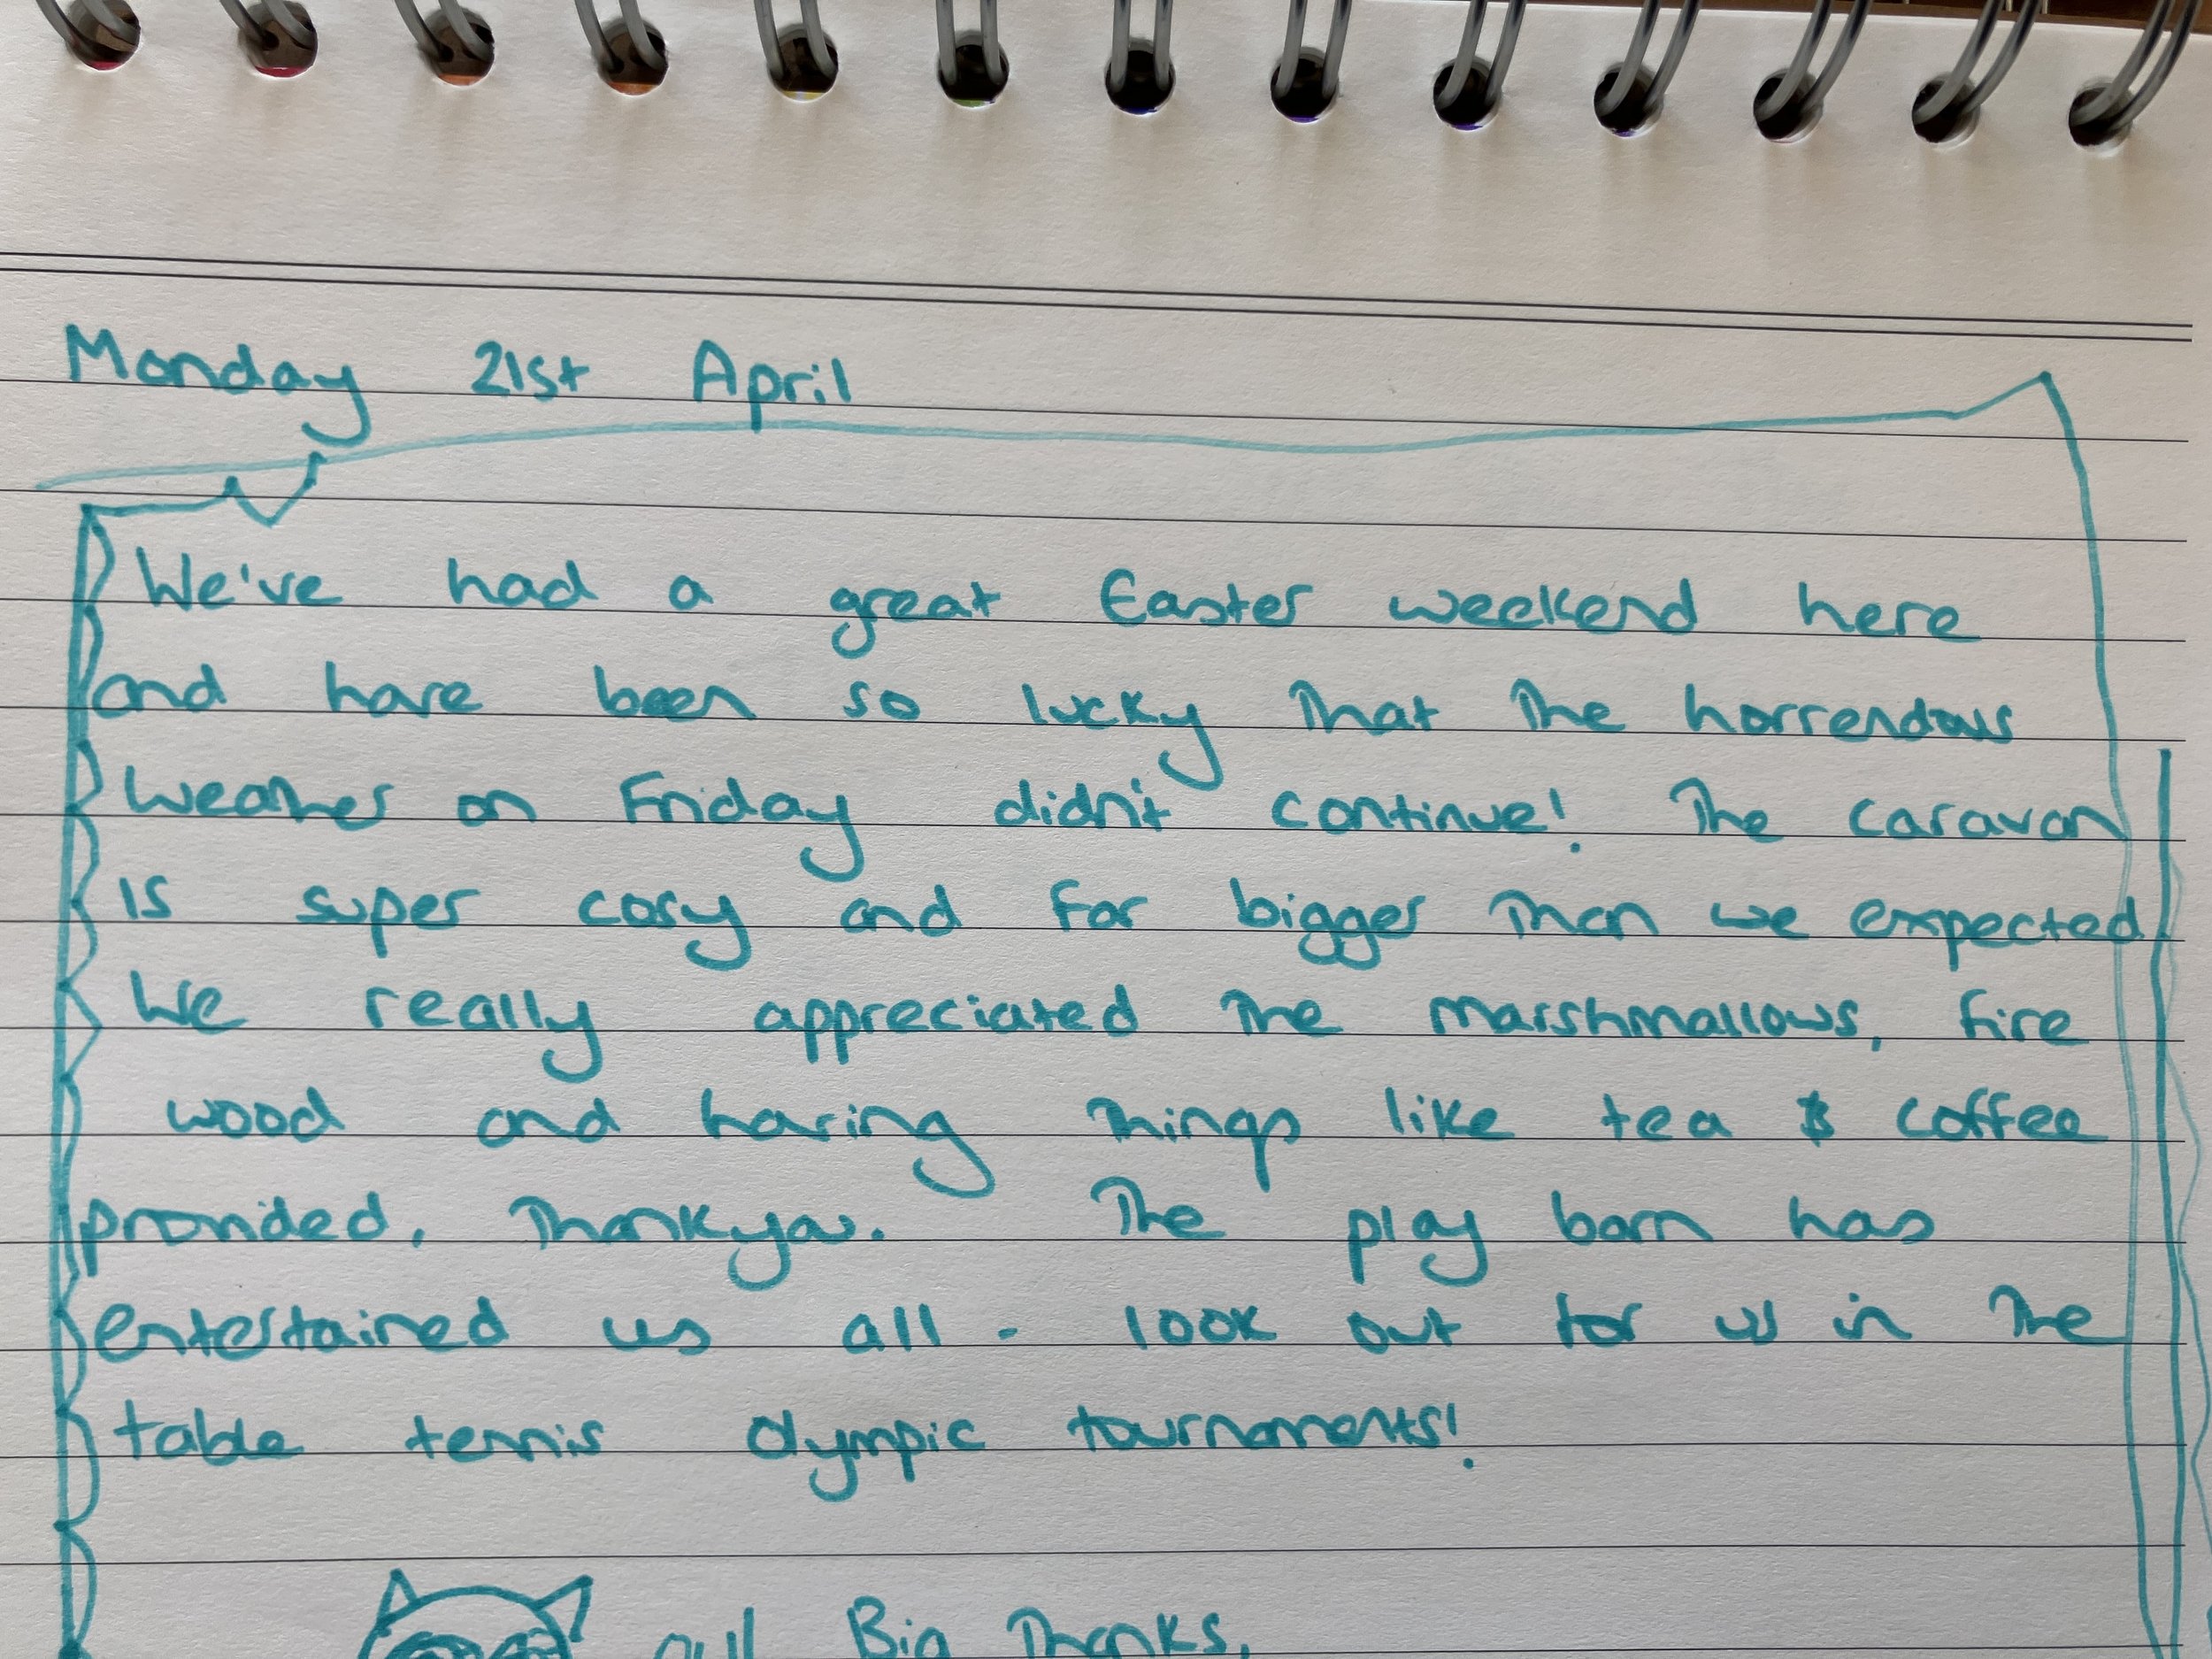 Monday 21st April
We've had a great Easter weekend here
and have been so lucky that the horrendous
weather on Friday didn't continue! The caravan
is super cosy and far bigger than we expected
We really appreciated the marshmallows, fire
wood and having things like tea & coffee
provided, Thankyou. The play barn has
entertained us all - look out for us in the
table tennis olympic tournaments!
Big Thanks,